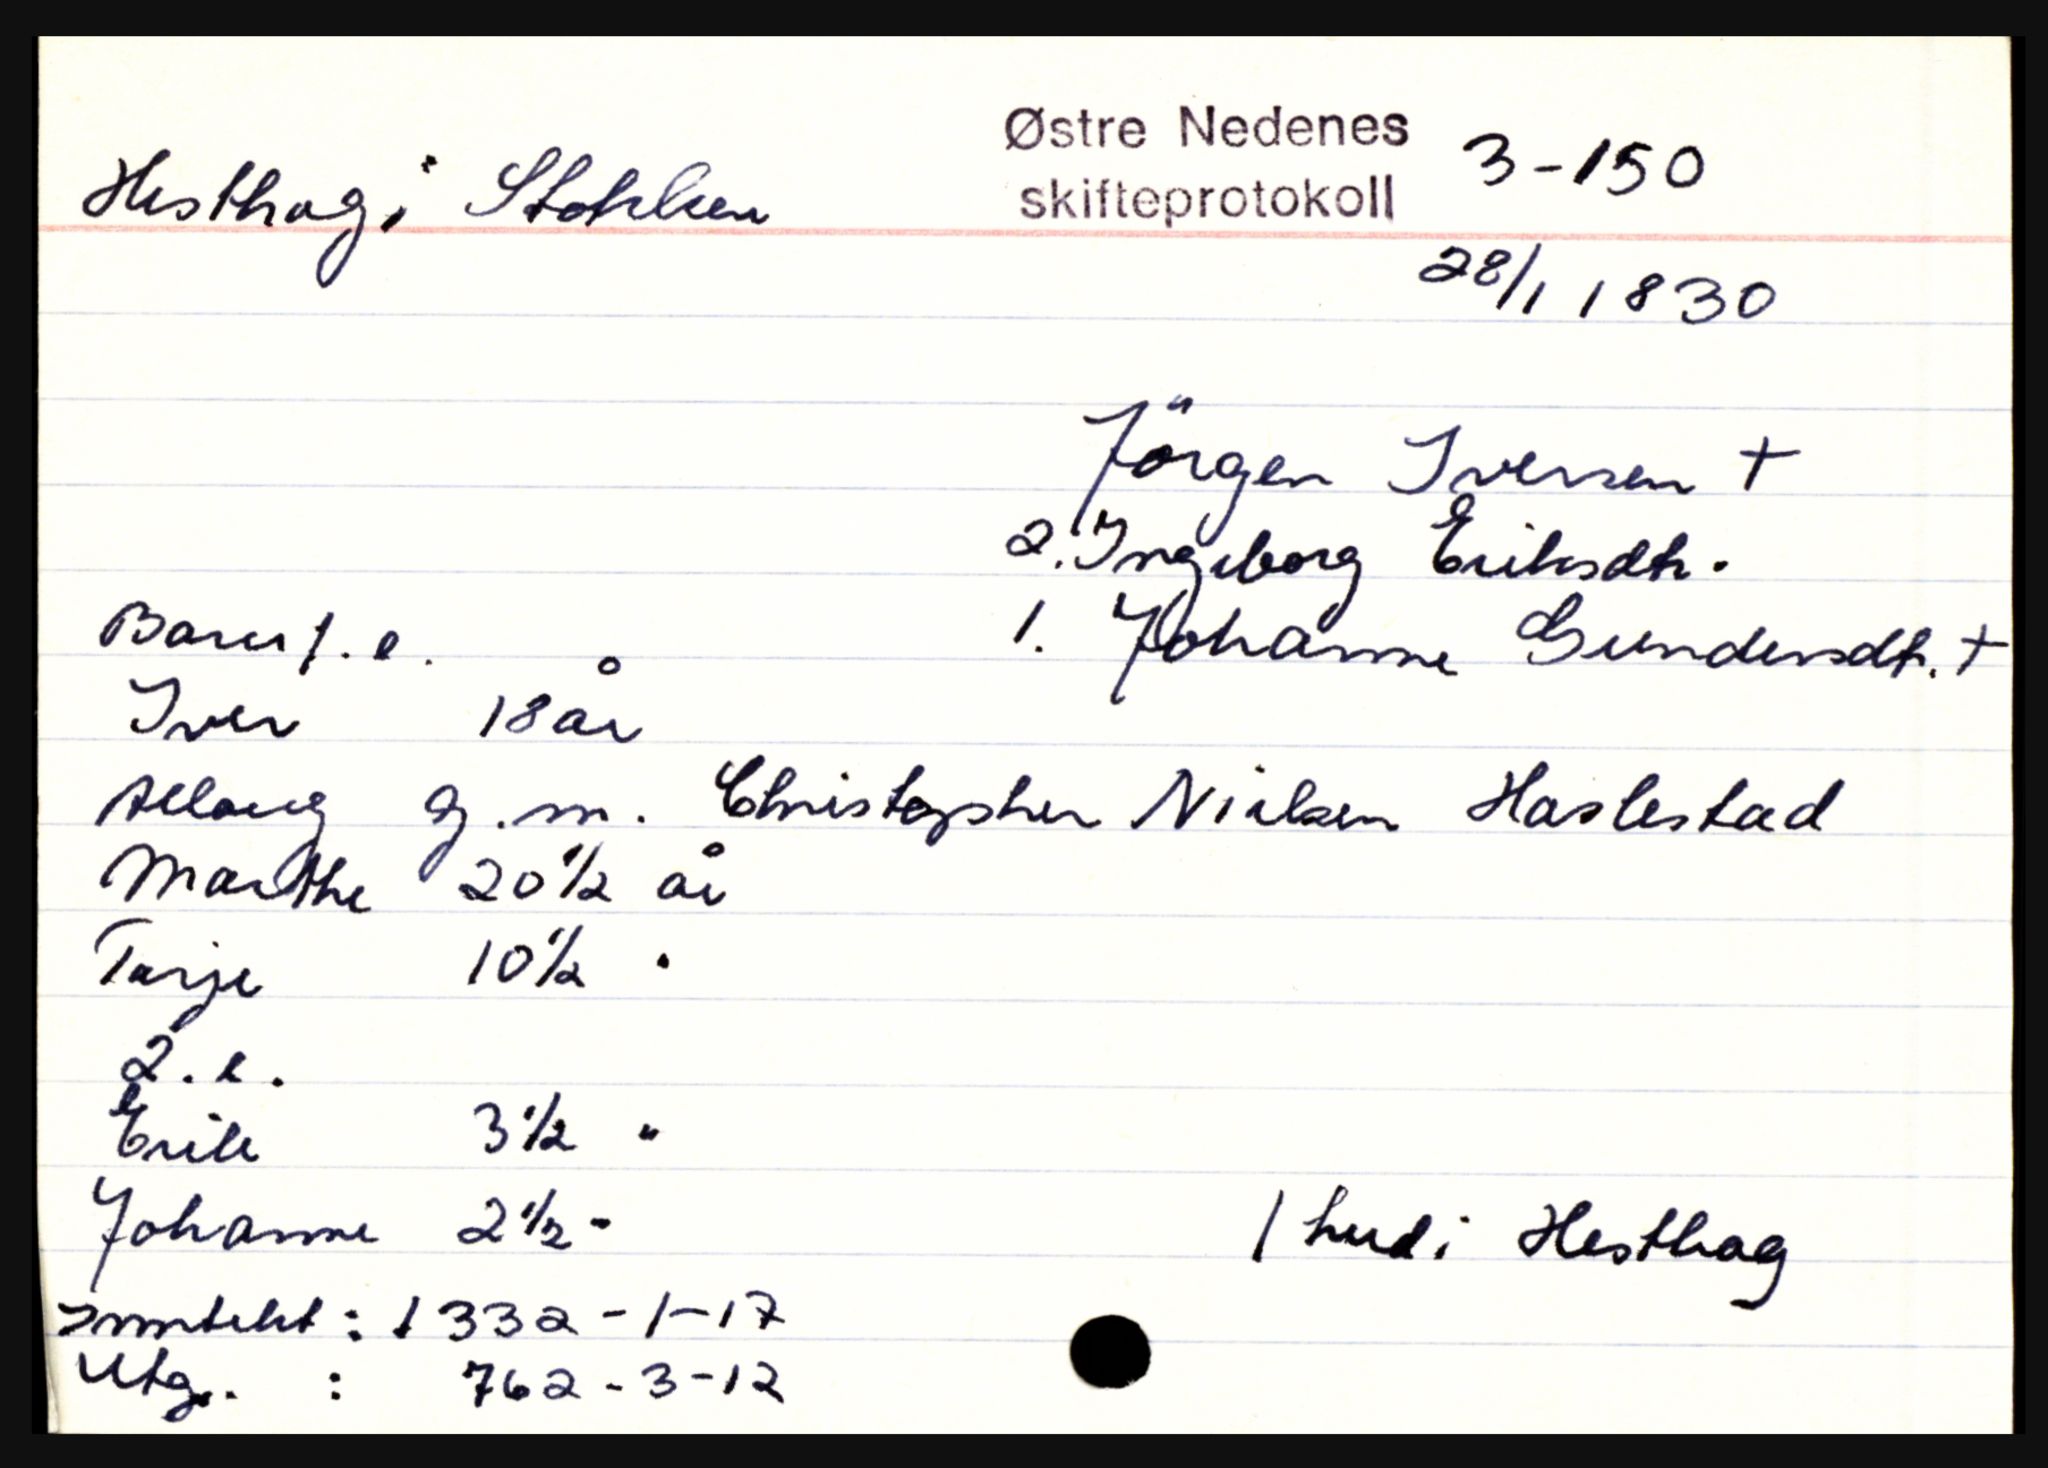 Østre Nedenes
skifteprotokoll 3-150
Hesthag i Stokken
28/1 1830
Jörgen Iversen +
2. Ingeborg Eriksdtr.
1. Johanne Gundersdtr. +
Barn 1. e.
Iver 18 år
Aslaug g. m. Christopher Nielsen Haslestad
Marthe 20 1/2 år
Tarje 10 1/2 "
2. e.
Erik 3 1/2 "
Johanne 2 1/2 "
1 hud i Hesthag
Inntekt : 1332 - 1 - 17
Utg. : 762 - 3 - 12